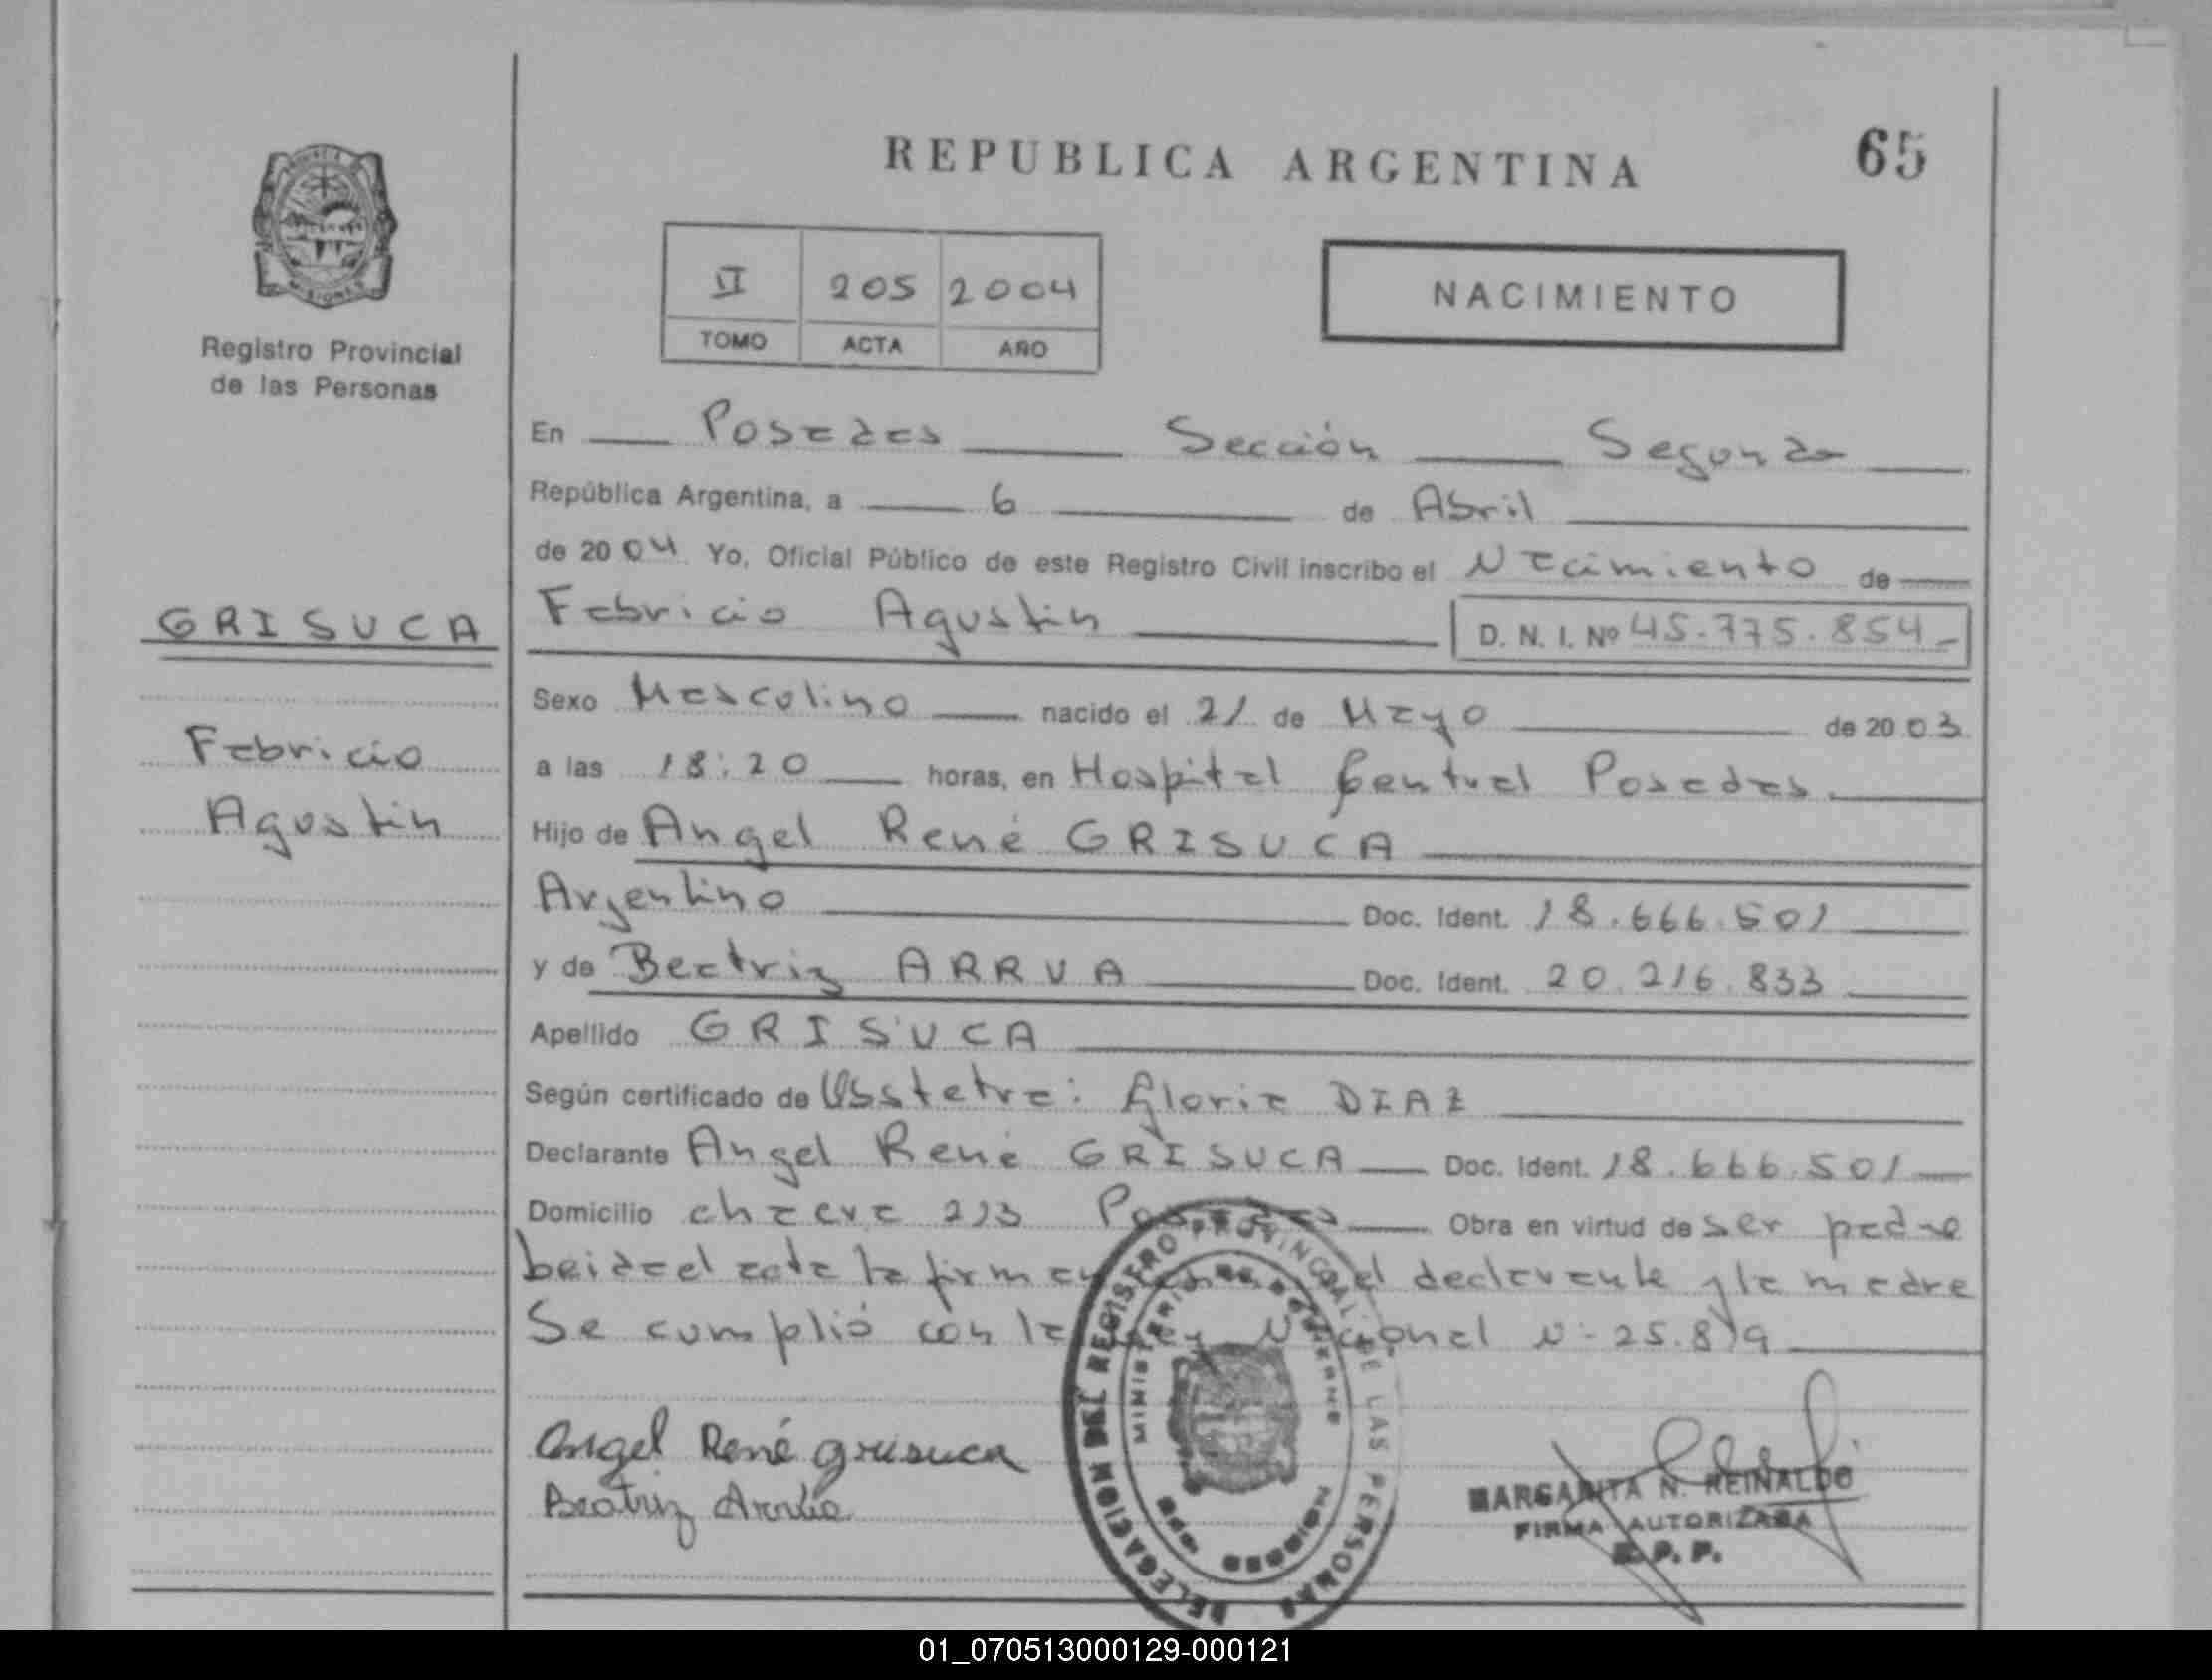 REPUBLICA ARGENTINA
65
II 205 2004
TOMO ACTA AÑO
NACIMIENTO
PROVINCIA DE MISIONES
Registro Provincial
de las Personas
En Posadas Sección Segunda
República Argentina, a 6 de Abril
de 2004 Yo, Oficial Público de este Registro Civil inscribo el Nacimiento de
GRISUCA
Fabricio Agustin
D. N. I. Nº 45.775.854
Sexo Masculino nacido el 21 de Mayo de 2003
Fabricio
Agustin
a las 18:20 horas, en Hospital Central Posadas.
Hijo de Angel René GRISUCA
Argentino Doc. Ident. 18.666.501
y de Beatriz ARRUA Doc. Ident. 20.216.833
Apellido GRISUCA
Según certificado de Obstetra: Gloria DIAZ
Declarante Angel René GRISUCA Doc. Ident. 18.666.501
Domicilio chacra 213 Posadas Obra en virtud de ser padre
acta la firman el declarante y la madre
Se cumplió con la Ley Nacional N- 25.819
Angel René Grisuca
Beatriz Arrúa
DELEGACION DEL REGISTRO PROVINCIAL DE LAS PERSONAS
MINISTERIO DE GOBIERNO
MISIONES
MARGARITA N. REINALDO
FIRMA AUTORIZADA
R. P. P.
01_070513000129-000121